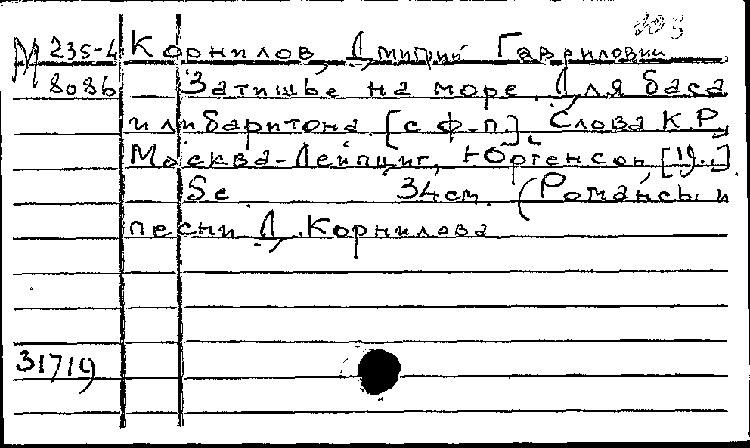 М 235-4 Корнилов, Дмитрий Гавриилович
8086 Затишье на море. Для баса
или баритона [с ф-п.] Слова К.Р.
Москва-Лейпциг, Юргенсон, [19..]
5 с. 34 см. (Романсы и
песни Д. Корнилова
31719